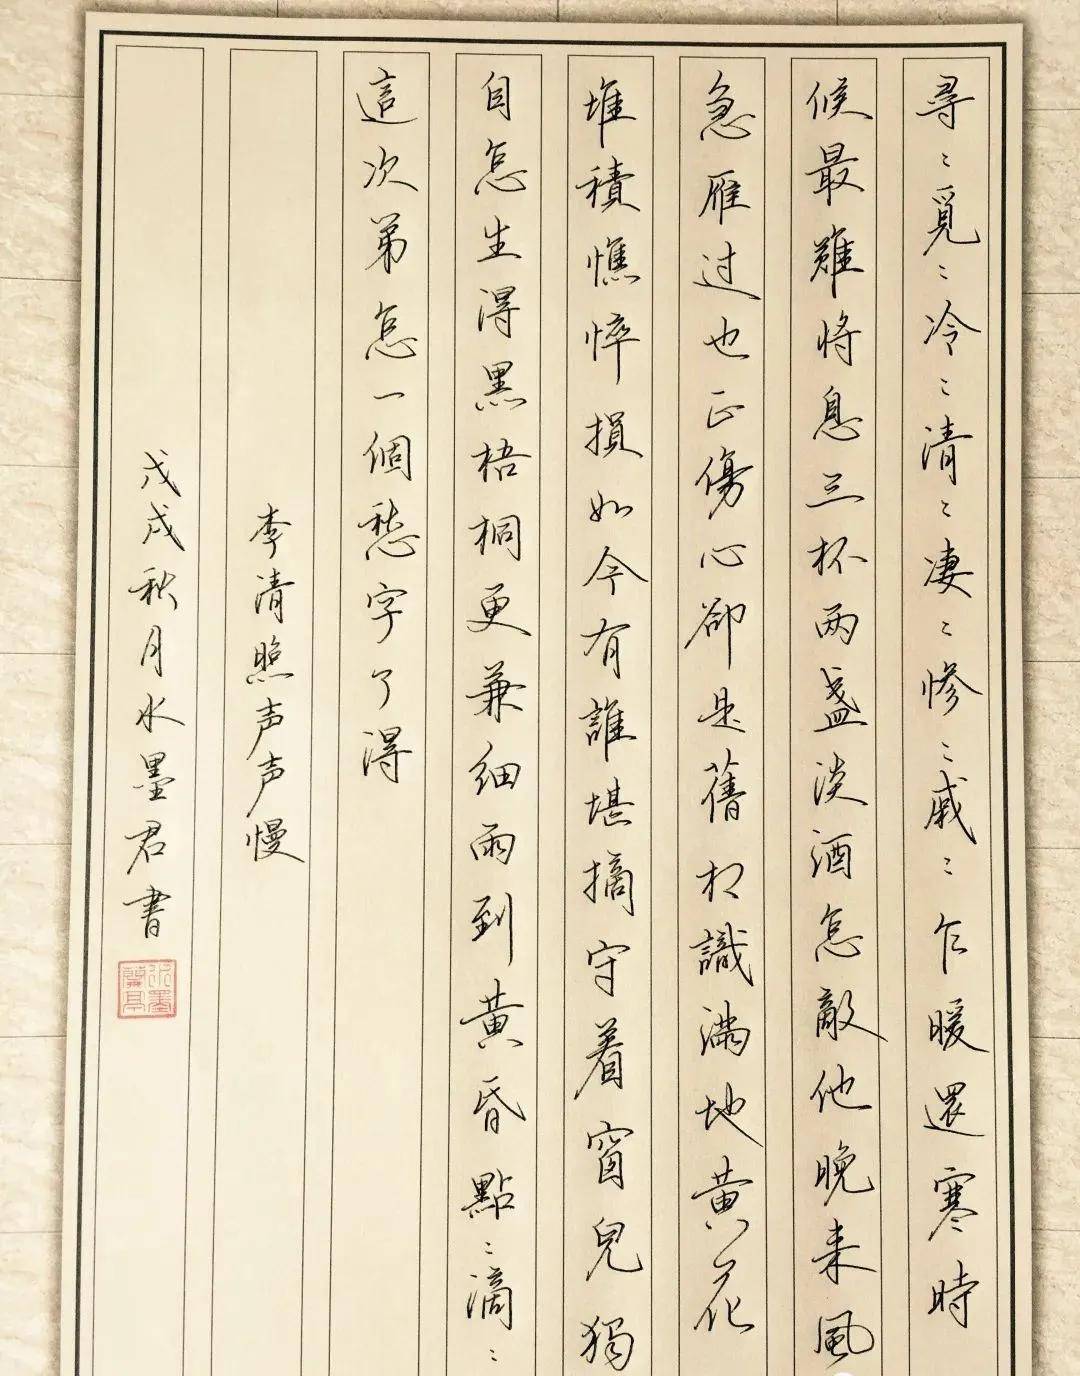 尋〻覓〻冷〻清〻凄〻惨〻戚〻乍暖還寒時
候最難将息三杯两盏淡酒怎敵他晚来風
急雁过也正傷心卻是舊相識满地黄花
堆積憔悴損如今有誰堪摘守着窗兒獨
自怎生得黑梧桐更兼细雨到黄昏點〻滴〻
這次弟怎一個愁字了得
李清照声声慢
戊戌秋月水墨君書